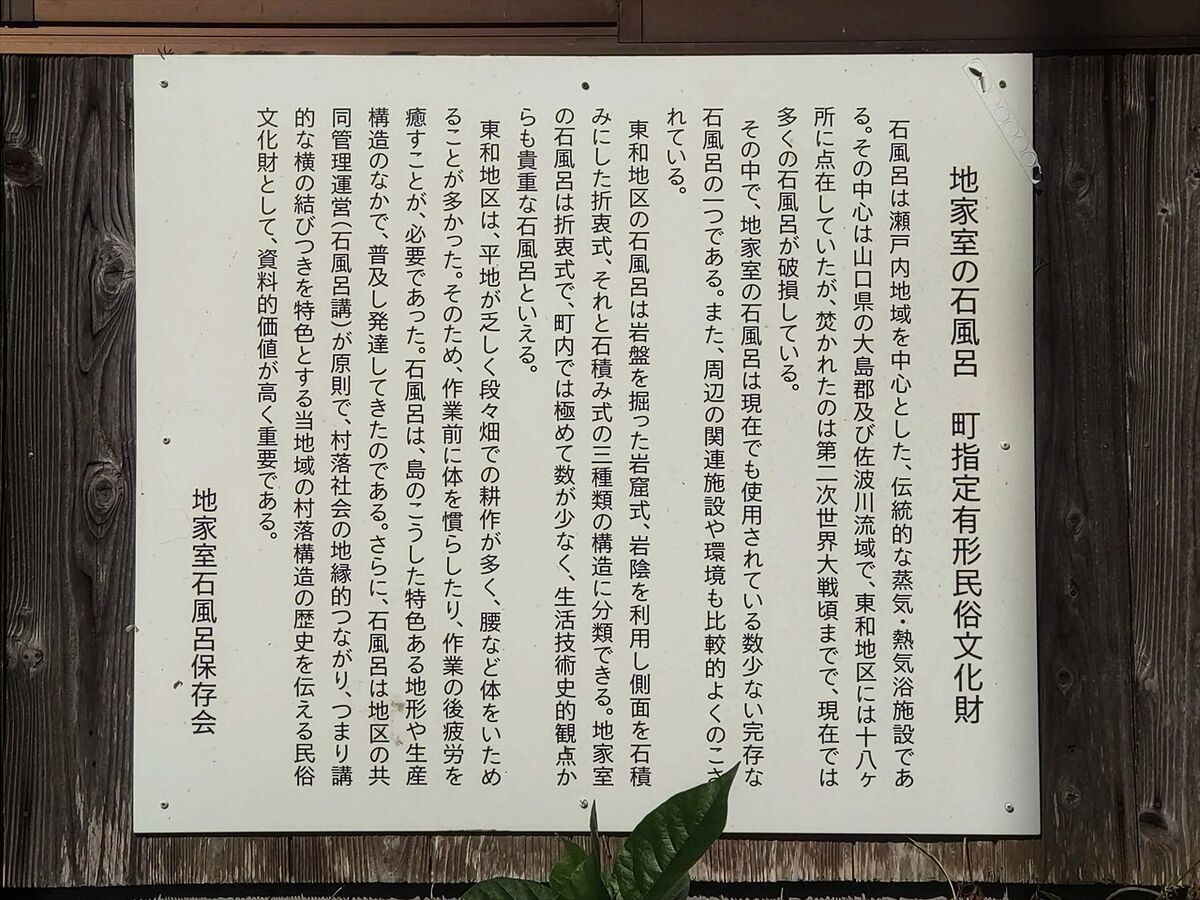 地家室の石風呂　町指定有形民俗文化財
石風呂は瀬戸内地域を中心とした、伝統的な蒸気・熱気浴施設であ
る。その中心は山口県の大島郡及び佐波川流域で、東和地区には十八ヶ
所に点在していたが、焚かれたのは第二次世界大戦頃までで、現在では
多くの石風呂が破損している。
その中で、地家室の石風呂は現在でも使用されている数少ない完存な
石風呂の一つである。また、周辺の関連施設や環境も比較的よくのこさ
れている。
東和地区の石風呂は岩盤を掘った岩窟式、岩陰を利用し側面を石積
みにした折衷式、それと石積み式の三種類の構造に分類できる。地家室
の石風呂は折衷式で、町内では極めて数が少なく、生活技術史的観点か
らも貴重な石風呂といえる。
東和地区は、平地が乏しく段々畑での耕作が多く、腰など体をいため
ることが多かった。そのため、作業前に体を慣らしたり、作業の後疲労を
癒すことが、必要であった。石風呂は、島のこうした特色ある地形や生産
構造のなかで、普及し発達してきたのである。さらに、石風呂は地区の共
同管理運営（石風呂講）が原則で、村落社会の地縁的つながり、つまり講
的な横の結びつきを特色とする当地域の村落構造の歴史を伝える民俗
文化財として、資料的価値が高く重要である。
地家室石風呂保存会